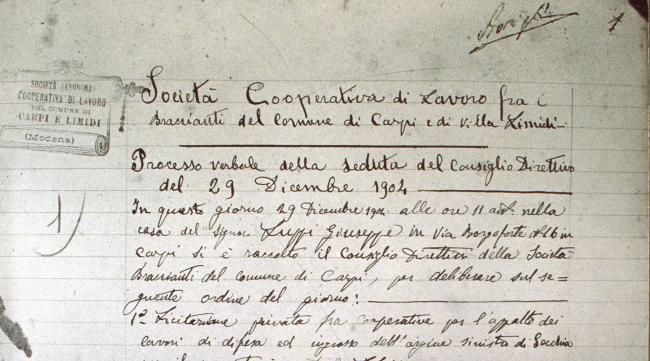 1
SOCIETÀ (ANONIMA)
COOPERATIVA DI LAVORO
DEL COMUNE DI
CARPI E LIMIDI
(Modena)
Società Cooperativa di Lavoro fra i
Braccianti del Comune di Carpi e di Villa Limidi
Processo verbale della seduta del Consiglio Direttivo
del 29 Dicembre 1904
1)
In questo giorno 29 Dicembre 1904 alle ore 11 ant. nella
casa del signor Luppi Giuseppe in Via Borgoforte N. 16 in
Carpi si è raccolto il Consiglio Direttivo della Società
Braccianti del Comune di Carpi, per deliberare sul se=
guente ordine del giorno:
1° Licitazione privata fra cooperative per l'appalto dei
lavori di difesa ed ingrosso dell'argine sinistro di Secchia